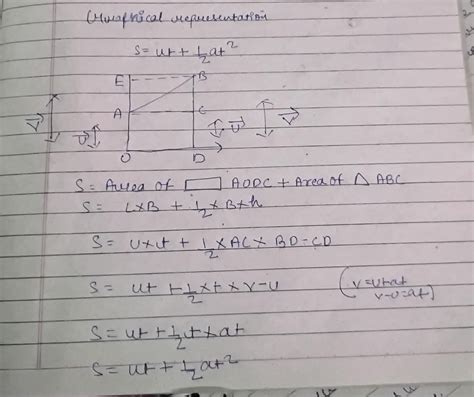 Graphical representation
S = ut + 1/2 at²
E B
A C
O D
V⃗ U⃗ U⃗ V⃗
S = Area of ▭ AODC + Area of △ ABC
S = L×B + 1/2 × B×h
S = U×t + 1/2 × AC × BD-CD
S = ut + 1/2 × t × v-u (v=u+at
v-u=at)
S = ut + 1/2 t × at
S = ut + 1/2 at²